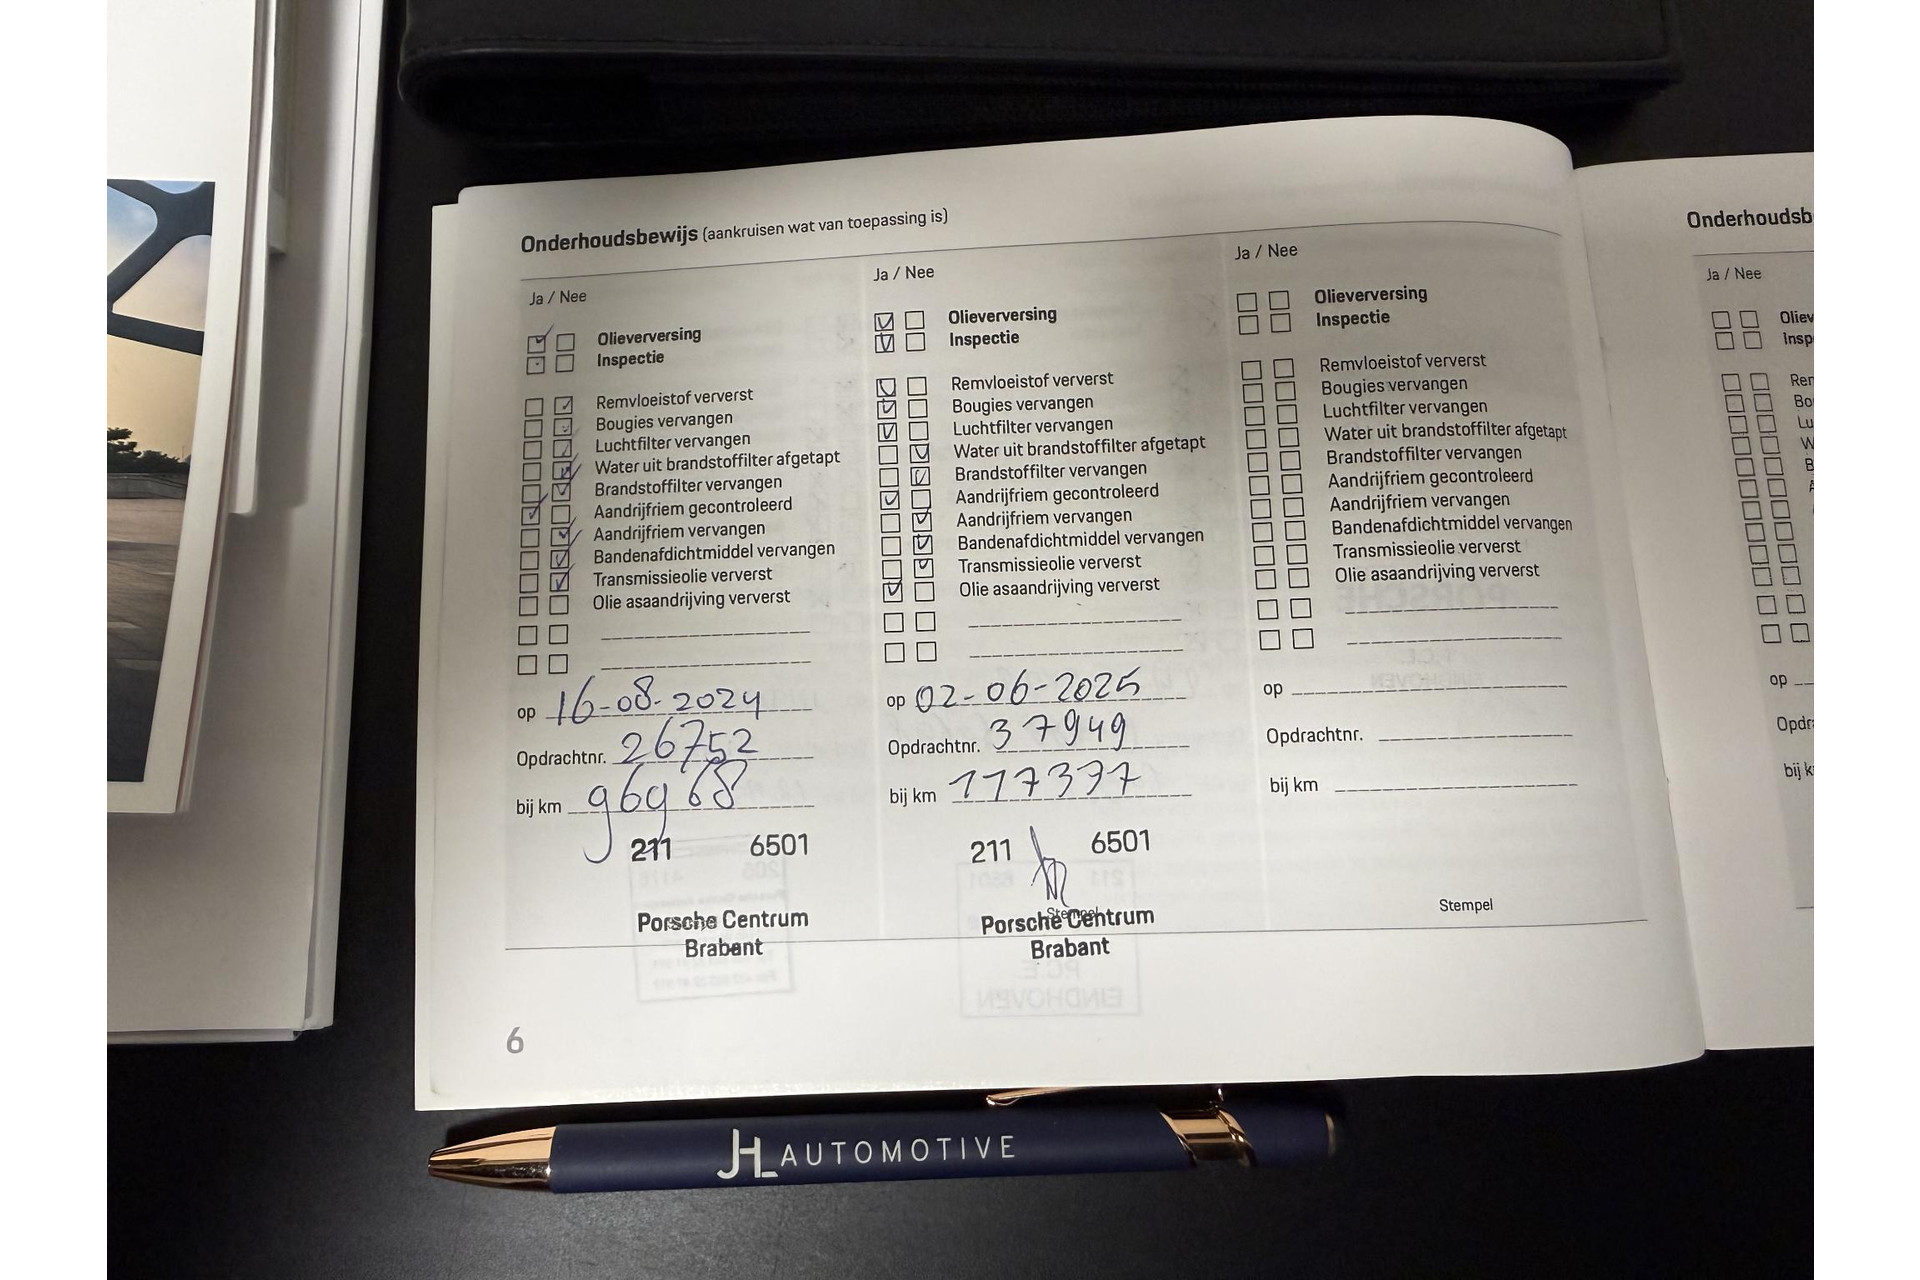 Onderhoudsbewijs (aankruisen wat van toepassing is)
Ja / Nee
Olieverversing
Inspectie
Remvloeistof ververst
Bougies vervangen
Luchtfilter vervangen
Water uit brandstoffilter afgetapt
Brandstoffilter vervangen
Aandrijfriem gecontroleerd
Aandrijfriem vervangen
Bandenafdichtmiddel vervangen
Transmissieolie ververst
Olie asaandrijving ververst
op 16-08-2024
Opdrachtnr. 26752
bij km 96968
211 6501
Porsche Centrum
Brabant
Ja / Nee
Olieverversing
Inspectie
Remvloeistof ververst
Bougies vervangen
Luchtfilter vervangen
Water uit brandstoffilter afgetapt
Brandstoffilter vervangen
Aandrijfriem gecontroleerd
Aandrijfriem vervangen
Bandenafdichtmiddel vervangen
Transmissieolie ververst
Olie asaandrijving ververst
op 02-06-2025
Opdrachtnr. 37949
bij km 117337
211 6501
Stempel
Porsche Centrum
Brabant
Ja / Nee
Olieverversing
Inspectie
Remvloeistof ververst
Bougies vervangen
Luchtfilter vervangen
Water uit brandstoffilter afgetapt
Brandstoffilter vervangen
Aandrijfriem gecontroleerd
Aandrijfriem vervangen
Bandenafdichtmiddel vervangen
Transmissieolie ververst
Olie asaandrijving ververst
op
Opdrachtnr.
bij km
Stempel
6
Onderhoudsb
Ja / Nee
Oliev
Insp
Rem
Bo
Lu
W
B
op
Opdr
bij k
JHL AUTOMOTIVE